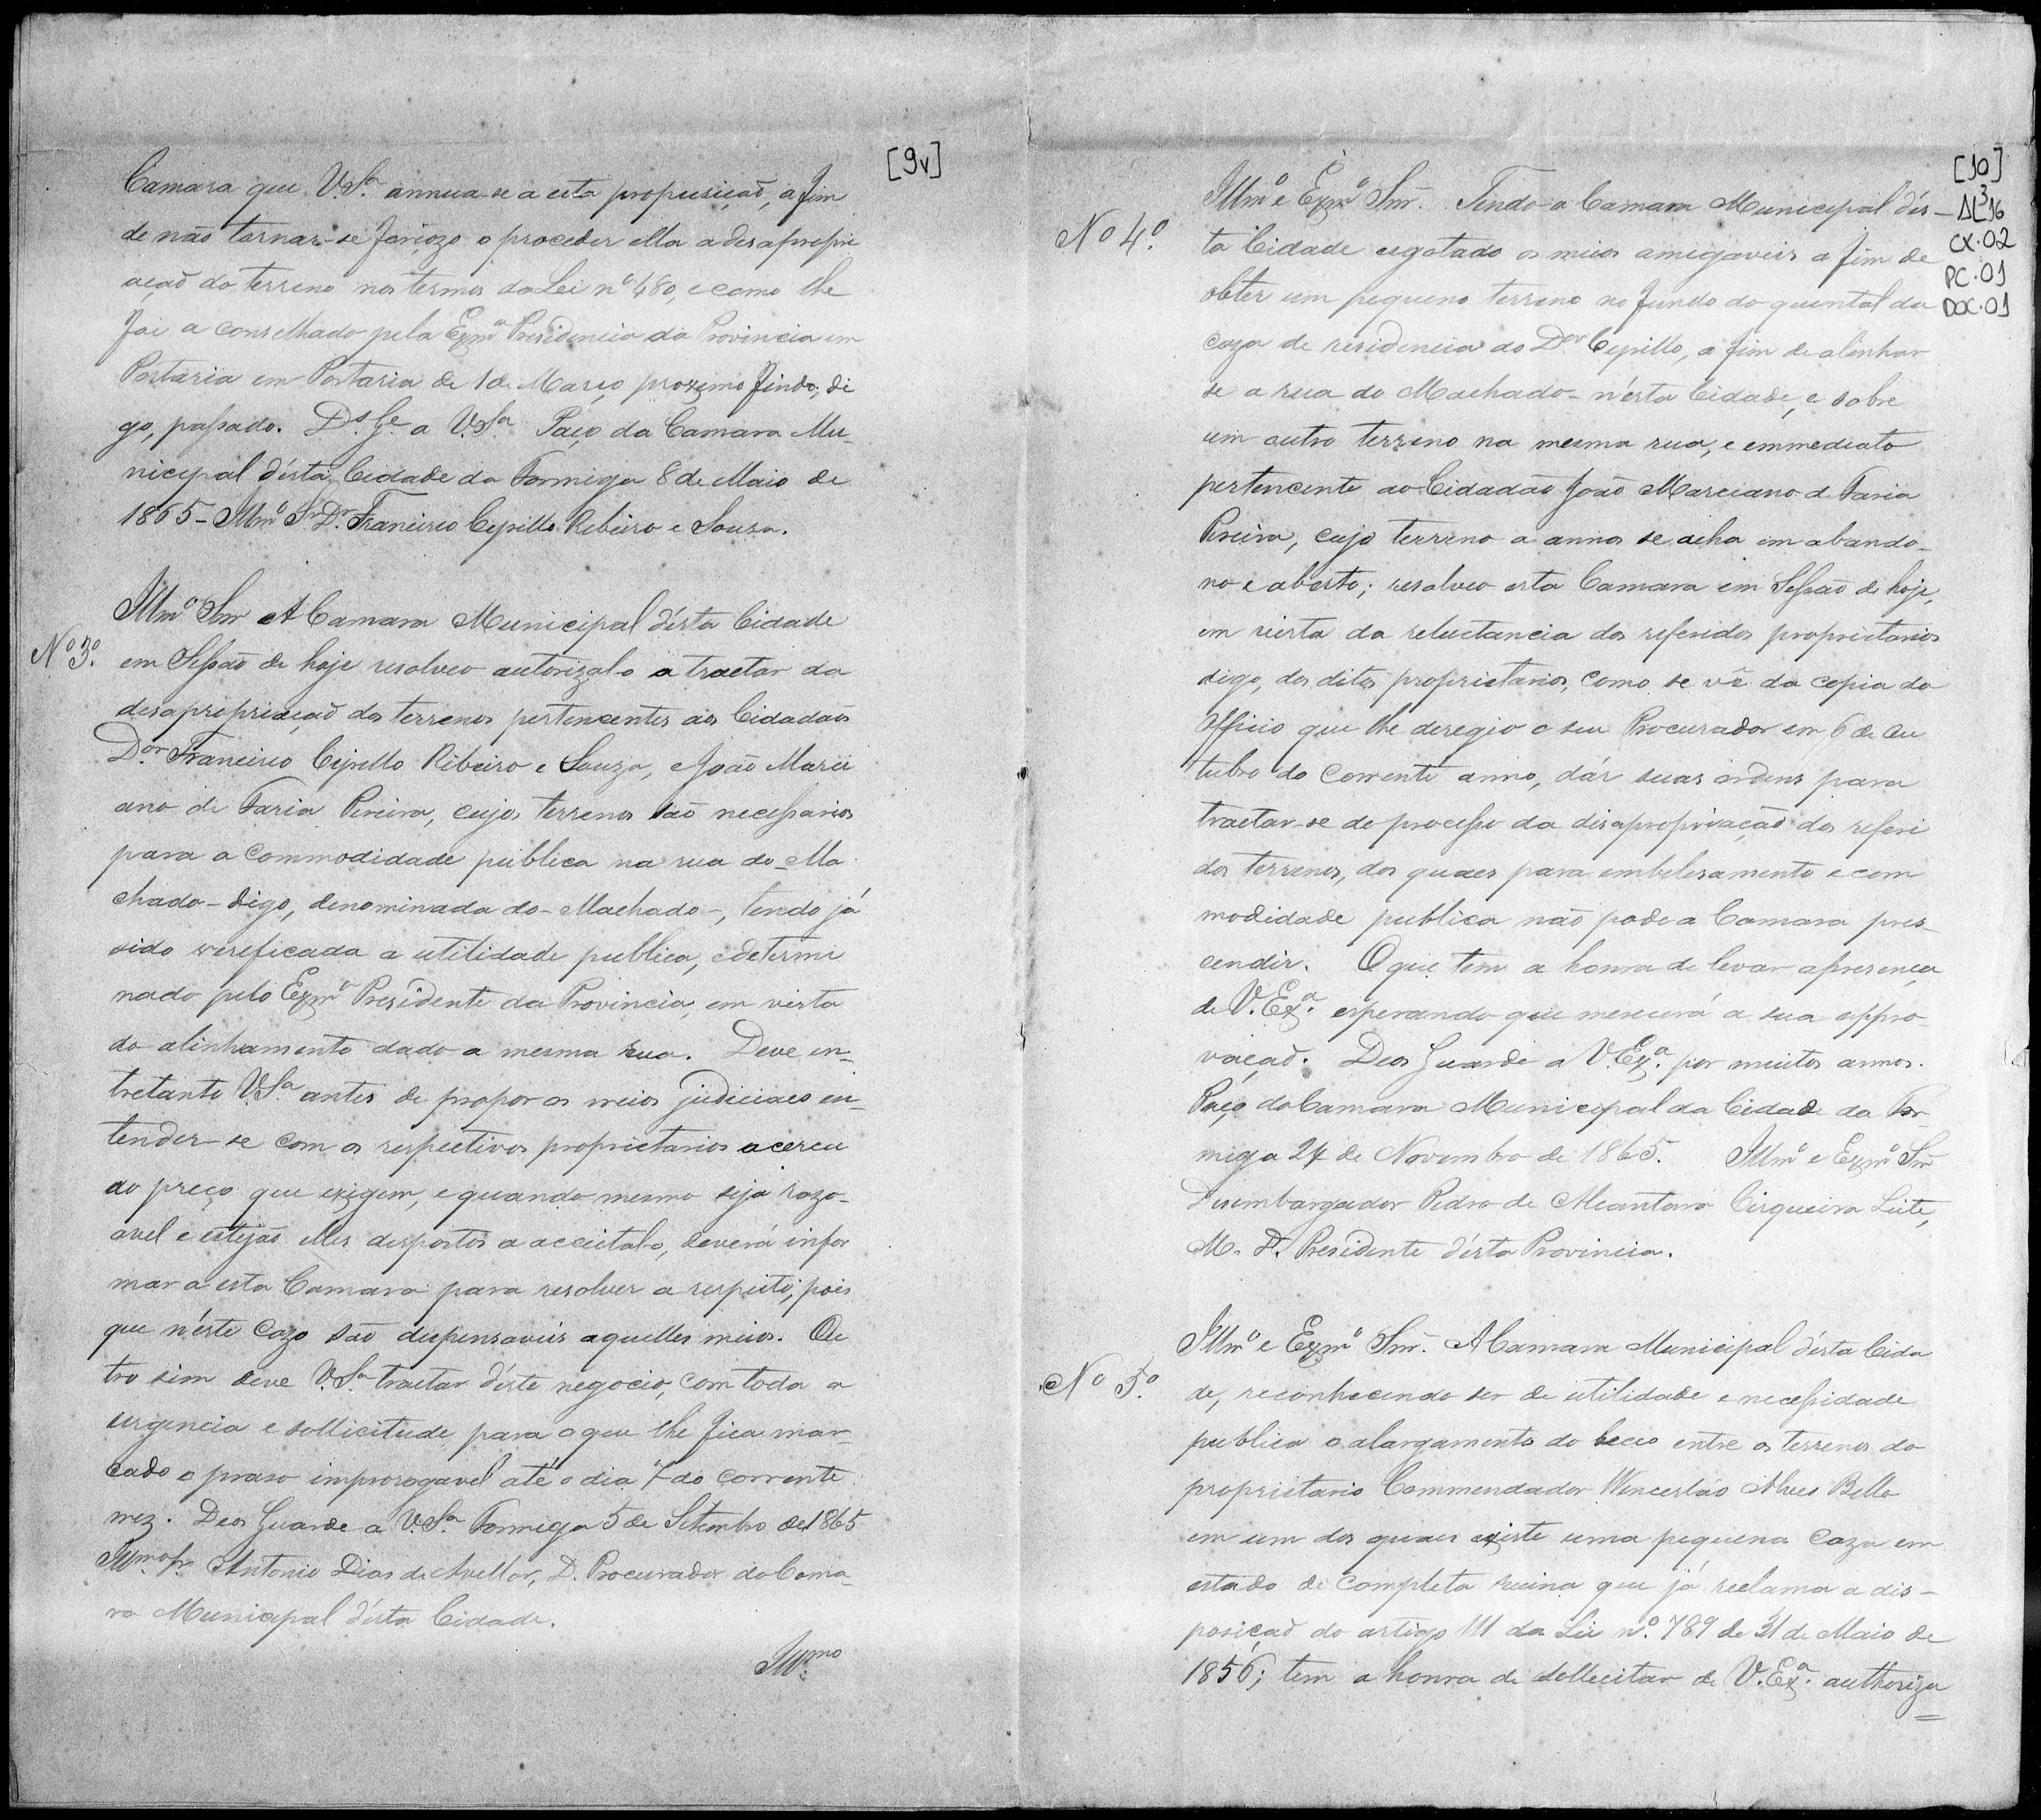 [9v]
Camara que V.Sª annua-se a esta propusiçaõ, a fim
de não tornar-se forçozo o proceder ella a desapropri
açaõ do terreno nos termos da Lei nº 480, e como lhe
foi a conselhado pela Exmª Presidencia da Provincia em
Portaria em Portaria de 1 de Março proximo findo, di
go, passado. Ds. Ge. a V.Sª Paço da Camara Mu-
nicipal d'ésta Cidade da Formiga 8 de Maio de
1865 - Illmº Sr. Dr. Francisco Cyrillo Ribeiro e Sousa.
Nº 3º.
Illmº Snr A Camara Municipal d'ésta Cidade
em Sessaõ de hoje resolveo autorizal-o a tractar da
desapropriaçaõ dos terrenos pertencentes aos Cidadaõs
Dor Francisco Cyrillo Ribeiro e Souza, e João Marci
ano de Faria Pereira, cujos terrenos saõ necessarios
para a commodidade publica na rua do - Ma
chado - digo, denominada do - Machado -, tendo já
sido verificada a utilidade publica, e determi
nado pelo Exmº Presidente da Provincia, em vista
do alinhamento dado a mesma rua. Deve en-
tretanto V.Sª antes de propor os meios judiciaes en-
tender-se com os respectivos proprietarios acerca
do preço que exigem, e quando mesmo seja razo-
avel e estejaõ elles dispostos a acceital-o, deverá infor
mar a esta Camara para resolver a respeito, pois
que n'éste cazo saõ dispensaveis aquelles meios. Ou
tro sim deve V.Sª tractar d'éste negocio, com toda a
urgencia e sollicitude para o que lhe fica mar-
cado o praso improrogavel até o dia 7 do corrente
mez. Deos Guarde a V.Sª Formiga 5 de Setembro de 1865
Illmo Sr. Antonio Dias de Avellar, D. Procurador da Cama-
ra Municipal d'ésta Cidade.
Illmo
[10]
AL³16
CX.02
PC.01
DOC.01
Nº 4º.
Illmº e Exmº Snr. Tendo a Camara Municipal d'és-
ta Cidade esgotado os meios amigaveis a fim de
obter um pequeno terreno no fundo do quental da
caza de residencia do Dor Cyrillo, a fim de alinhar
se a rua do Machado - n'ésta Cidade, e sobre
um outro terreno na mesma rua, e emmediato
pertencente ao Cidadaõ Joaõ Marciano de Faria
Pereira, cujo terreno a annos se acha em abando-
no e aberto; resolveo esta Camara em Sessaõ de hoje,
em vista da reluctancia dos referidos proprietarios
digo, dos ditos proprietarios, como se vê da copia do
Officio que lhe deregio o seu Procurador em 6 de Ou
tubro do corrente anno, dár suas ordens para
tractar-se do processo da disapropriaçaõ dos referi
dos terrenos, dos quaes para embelesamento e com
modidade publica não pode a Camara pres-
cendir. O que tem a honra de levar a presença
de V.Exª. esperando que merecerá a sua appro-
vaçaõ. Deos Guarde a V.Exª. por muitos annos.
Paço da Camara Municipal da Cidade da For-
miga 24 de Novembro de 1865. Illmº e Exmº Snr
Desembargador Pedro de Alcantara Cirqueira Leite,
M. D. Presidente d'ésta Provincia.
Nº 5º.
Illmº e Exmº Snr. A Camara Municipal d'ésta Cida
de, reconhecendo ser de utilidade e necessidade
publica o alargamento do beco entre os terrenos do
proprietario Commendador Wencesláo Alves Bello
em um dos quaes existe uma pequena caza em
estado de completa ruina que já reclama a dis-
posiçaõ do artigo 111 da Lei nº. 789 de 31 de Maio de
1856; tem a honra de sollecitar de V.Exª. authoriza